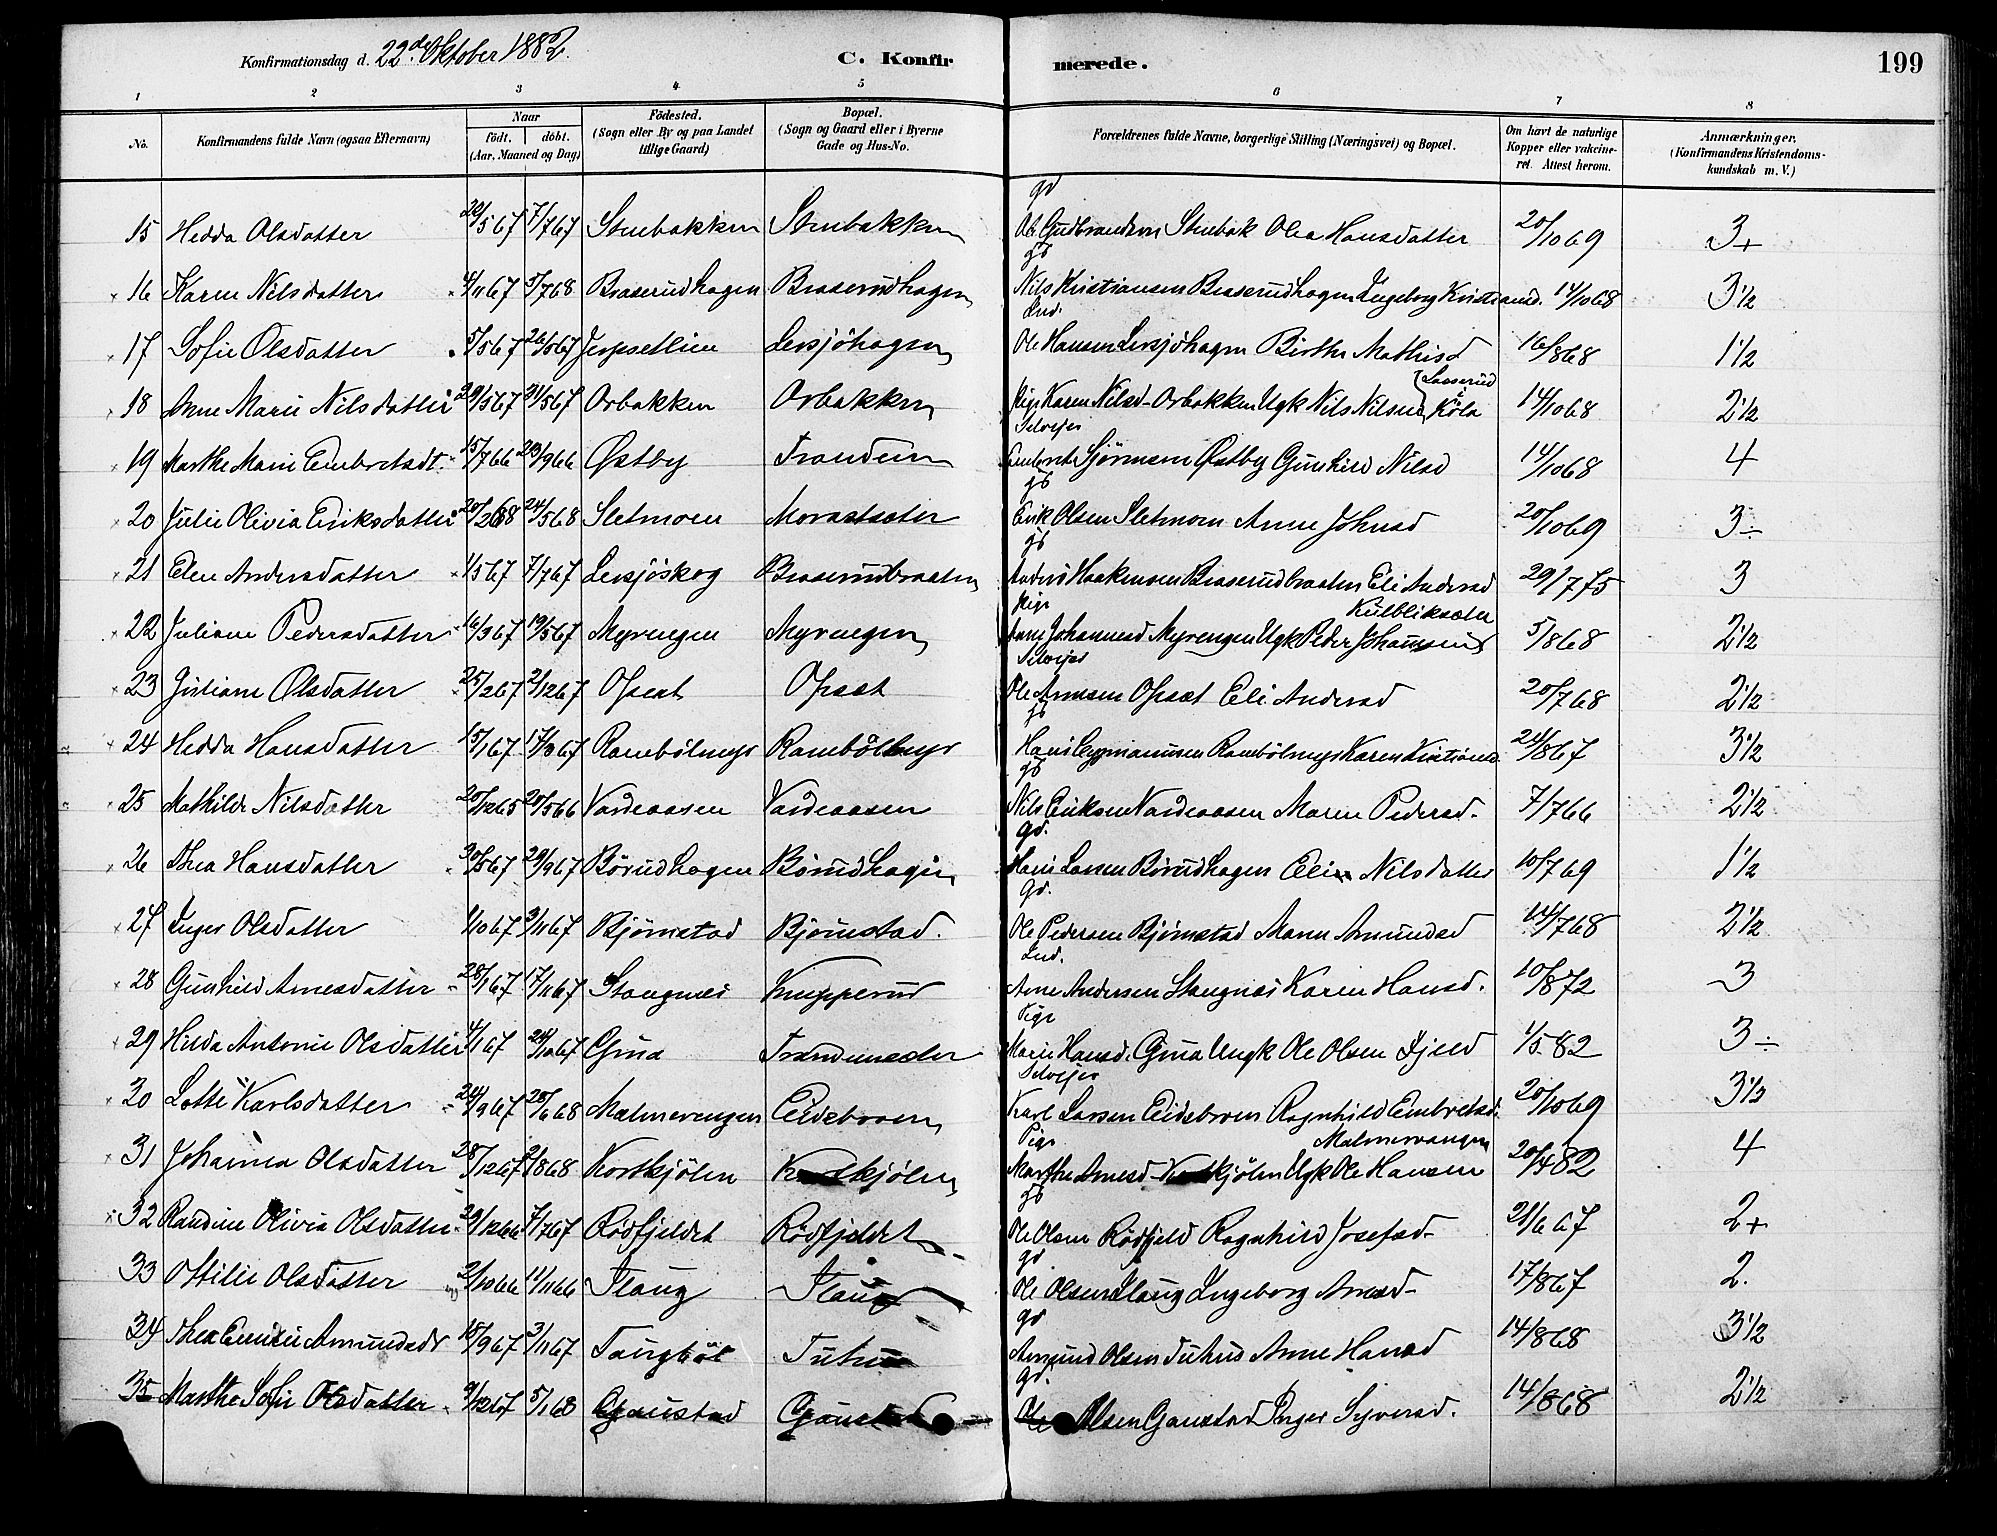 Konfirmationsdag d. 22de Oktober 1882.
C. Konfirmerede.
199
1 2 3 4 5 6 7 8
No. Konfirmandens fulde Navn (ogsaa Efternavn) Naar født, døbt. (Aar, Maaned og Dag) Födested. (Sogn eller By og paa Landet tillige Gaard) Bopæl. (Sogn og Gaard eller i Byerne Gade og Hus-No.) Forældrenes fulde Navne, borgerlige Stilling (Næringsvei) og Bopæl. Om havt de naturlige Kopper eller vakcineret. Attest herom. Anmærkninger. (Konfirmandens Kristendomskundskab m. V.)
gd
15 Hedda Olsdatter 20/5 67 7/7 67 Stubakken Stubakken Ole Gudbrandsen Stubak Olea Hansdatter 20/10 69 3+
gb
16 Karen Nilsdatter 4/11 67 5/7 68 Braserudhagen Braserudhagen Nils Kristiansen Braserudhagen Ingeborg Kristiansd. 14/10 68 3 1/2
Ind.
17 Sofie Olsdatter 5/5 67 26/5 67 Jerpsetlien Lersjöhagen Ole Hansen Lersjöhagen Birthe Mathisd 16/8 68 1 1/2
18 Anne Marie Nilsdatter 29/5 67 31/5 67 Orbakken Orbakken Pige Karen Nilsd-Orbakken Ugk Nils Nilsen Köla 14/10 68 2 1/2
Selvejer
19 Marthe Marie Embretsdt. 15/7 66 23/9 66 Østby Trandem Embret Sjørnsen Østby Gunhild Nilsd 14/10 68 4
gb
20 Julie Olivia Eriksdatter 20/2 68 24/5 68 Sletmoen Morastæter Erik Olsen Sletmoen Anne Johnsd 20/10 69 3÷
gb
21 Elen Andersdatter 1/5 67 7/7 67 Lersjöskog Braserudbraaten Anders Haakensen Braserudbraaten Eli Andersd 29/7 75 3
Pige Kulbliksæter
22 Juliane Pedersdatter 16/3 67 19/5 67 Myrengen Myrengen Anne Johannesd Myrengen Ugk Peder Johansen 5/8 68 2 1/2
Selvejer
23 Juliane Olsdatter 25/2 67 2/12 67 Opsæt Opsæt Ole Arnesen Opsæt Eli Andersd 20/7 68 2 1/2
gb
24 Hedda Hansdatter 15/1 67 17/3 67 Rambölnys Rambölnys Hans Rambölnys Karen Kristiansd 24/8 67 3 1/2
gb
25 Mathilde Nilsdatter 20/12 65 20/5 66 Vardeaasen Vardeaasen Nils Eriksen Vardeaasen Maren Pedersd. 7/7 66 2 1/2
gd.
26 Thea Hansdatter 30/5 67 29/9 67 Börudhagen Börudhagen Hans Larsen Börudhagen Eli Nilsdatter 10/7 69 1 1/2
gd.
27 Inger Olsdatter 1/10 67 3/11 67 Björnstad Björnstad. Ole Pedersen Björnstad Maren Amundsd 14/7 68 2 1/2
Ind.
28 Gunhild Arnesdatter 28/1 67 17/11 67 Stangnæs Knapperud Arne Andersen Stangnæs Karen Hansd. 10/8 72 3
Pige
29 Hilda Antonie Olsdatter 4/1 67 20/10 67 Grua Trandemsæter Marie Hansd. Grua Ungk Ole Olsen Fjeld 1/5 82 3÷
Selvejer
30 Lotte Karlsdatter 24/9 67 28/6 68 Malmerengen Eidebroen Karl Larsen Eidebroen Ragnhild Embretsd. 20/10 69 3 1/2
Pige Malmervangen
31 Johanna Olsdatter 28/12 67 2/8 68 Korskjölen kjölen Marthe Arnesd kjölen Ugk Ole Hansen 20/4 82 4
gb
32 Randine Olivia Olsdatter 29/12 66 7/7 67 Rödfjeldet Rödfjeldet Ole Olsen Rödfjeld Ragnhild Josefsd- 21/6 67 2+
gd
33 Ottilie Olsdatter 2/10 66 11/11 66 Flaug Flaug Ole Olsen Flaug Ingeborg Arnesd- 17/8 67 2.
gd
34 Thea Emilie Amundsdt 18/9 67 3/11 67 Taugböl Tutrud Amund Olsen Tutrud Anne Hansd 14/8 68 3 1/2
gd.
35 Marthe Sofie Olsdatter 9/12 67 5/1 68 Gaustad Gaustad Ole Olsen Gaustad Inger Syversd. 14/8 68 2 1/2